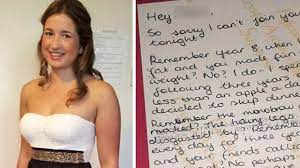 Hey
So sorry I can't join you
tonight!
Remember year 8, when
fat and you made fun
weight? No? I do - I spent
following three years
less than an apple a day
decided to skip dinner
Remember the monobrow
mocked? The hairy legs
disgusted by? Remember
every day for three years
and your friends called
no